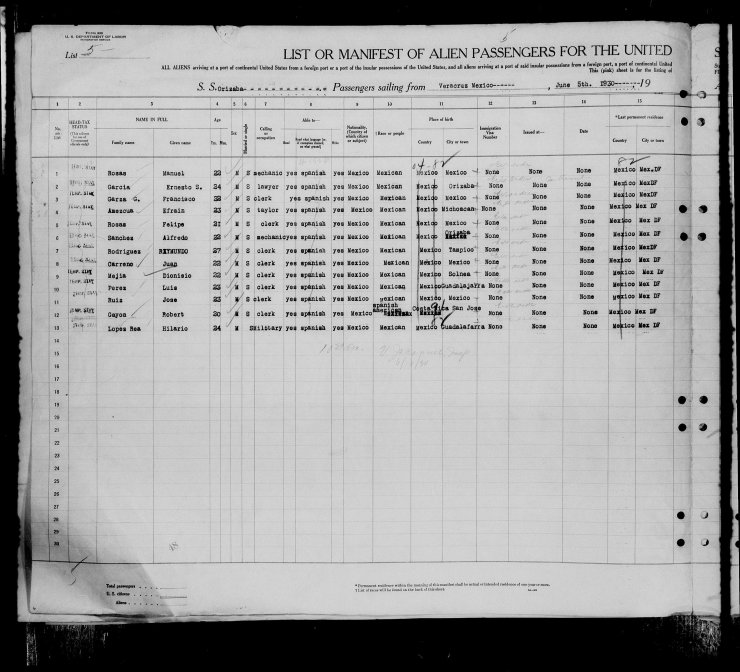 Form 500
U. S. DEPARTMENT OF LABOR
IMMIGRATION SERVICE
List 5
5
LIST OR MANIFEST OF ALIEN PASSENGERS FOR THE UNITED
ALL ALIENS arriving at a port of continental United States from a foreign port or a port of the insular possessions of the United States, and all aliens arriving at a port of said insular possessions from a foreign port, a port of continental United
This (pink) sheet is for the listing of
S. S. Orizaba Passengers sailing from Veracruz Mexico------, June 5th. 1930-----, 19
1 2 3 4 5 6 7 8 9 10 11 12 13 14 15
No. on List
HEAD-TAX STATUS
NAME IN FULL
Family name Given name
Age
Yrs. Mos.
Sex
Married or single
Calling or occupation
Able to—
Read Read what language Write
Nationality (Country of which citizen or subject)
†Race or people
Place of birth
Country City or town
Immigration Visa Number
Issued at—
Date
*Last permanent residence
Country City or town
04-82 82
1 Rosas Manuel 23 M S mechanic yes spanish yes Mexico Mexican Mexico Mexico None None None Mexico Mex.DF
2 Garcia Ernesto S. 24 M S lawyer yes spanish yes Mexico Mexican Mexico Orizaba None None None Mexico Mex DF
3 Garza G. Francisco 32 M S clerk yes spanish yes Mexico Mexican Mexico Mexico None None None Mexico Mex DF
4 Amezcua Efrain 23 M S taylor yes spanish yes Mexico Mexican Mexico Michoacan None None None Mexico Mex DF
5 Rosas Felipe 21 M S clerk yes spanish yes Mexico Mexican Mexico Mexico None None None Mexico Mex DF
6 Sanchez Alfredo 22 M S mechanic yes spanish yes Mexico Mexican Mexico Orizaba None None None Mexico Mex DF
7 Rodriguez REYMUNDO 27 M S clerk yes spanish yes Mexico Mexican Mexico Tampico None None None Mexico MexDF
8 Carreno Juan 23 M S clerk yes spanish yes Mexico Mexican Mexico Mexico None None None Mexico Mex DF
9 Mejia Dionisio 22 M S clerk yes spanish yes Mexico Mexican Mexico None None None Mexico Mex DF
10 Perez Luis 23 M S clerk yes spanish yes Mexico Mexican Mexico Guadalajarra None None None Mexico Mex DF
11 Ruiz Jose 23 M S clerk yes spanish yes Mexico mexican Mexico Mexico None None None Mexico Mex DF
12 Gayon Robert 20 M S clerk yes spanish yes Mexico spanish american Costa Rica San Jose None None None Mexico Mex DF
13 Lopez Rea Hilario 24 M S Military yes spanish yes Mexico Mexican Mexico Guadalajarra None None None Mexico Mex DF
14
15
16
17
18
19
20
21
22
23
24
25
26
27
28
29
30
Total passengers
U. S. citizens
Aliens
*Permanent residence within the meaning of this manifest shall be actual or intended residence of one year or more.
†List of races will be found on the back of this sheet